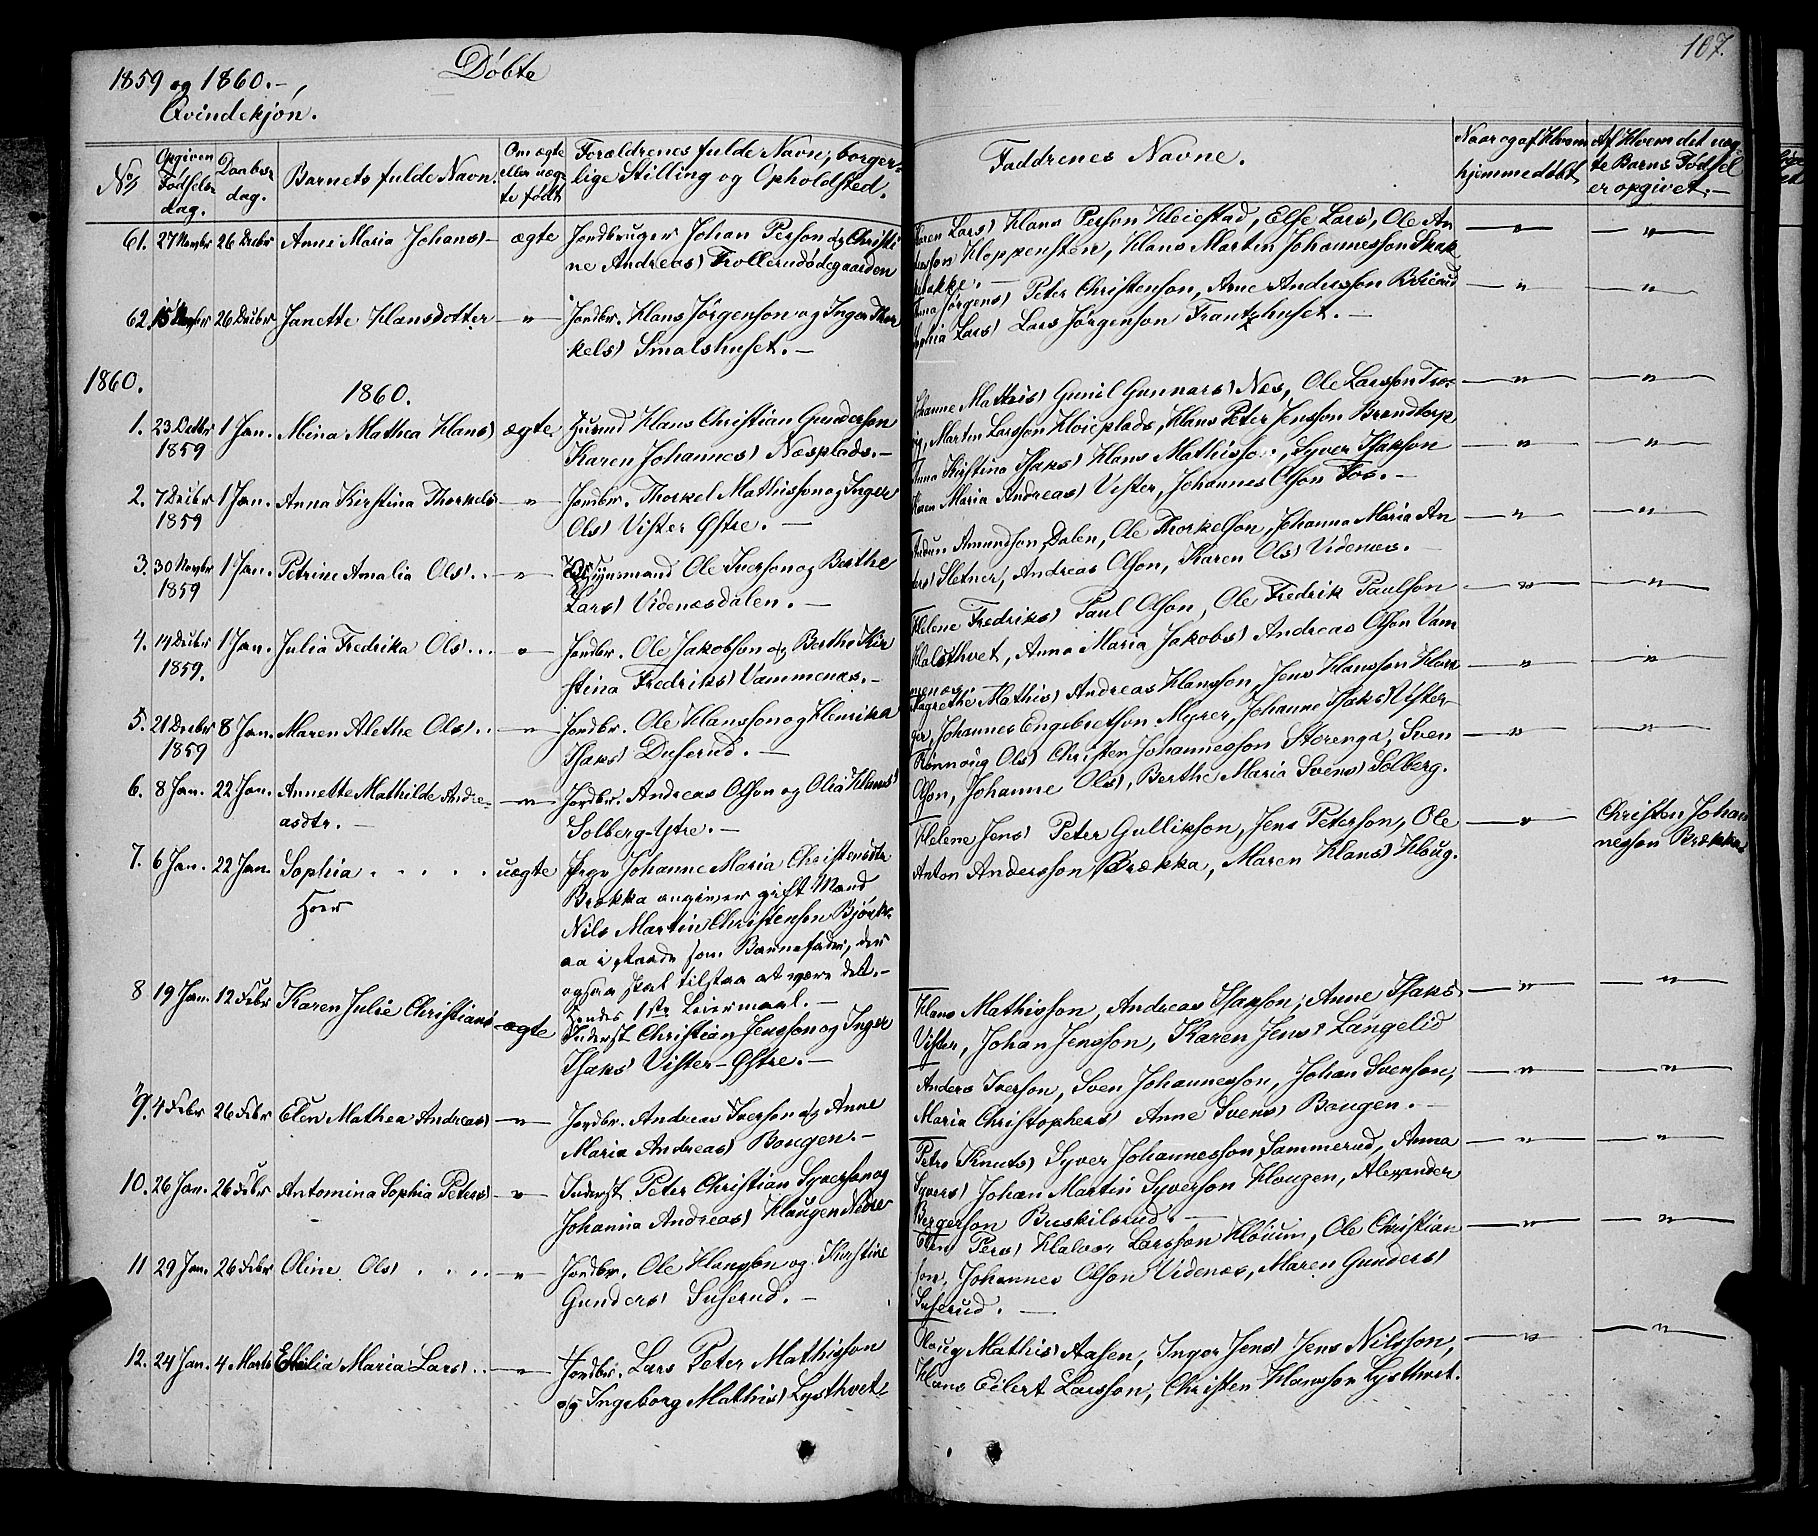 1859 og 1860.—
Døbte
107.
Qvindekjøn.
No
Opgiven Fødsels dag.
Daabs dag.
Barnets fulde Navn.
Om ægte eller uægte født
Forældrenes fulde Navn, borger-
lige Stilling og Opholdsted.
Faddrenes Navne.
Naar og af Hvem hjemmedøbt
Af Hvem det uæg-
te Barns Fødsel
er opgivet.—
61. 27 Novbr 26 Decbr Anne Maria Johans) ægte Jordbruger Johan Person og Christi
ne Andreas) Trollerudødegaarden
Karen Lars) Hans Person Høiestad, Else Lars), Ole An
Kloppensten, Hans Martin Johannesson Skak
62. 26 Decbr Janette Hansdotter " Jordbr. Hans Jørgenson og Inger Thor
kels) Smalshuset.—
Jørgens) Peter Christenson, Arne Andersson
Lars) Lars Jørgenson Frantzhuset.—
1860. 1860.
1. 23 Octbr 1859 1 Jan. Mina Mathea Hans) ægte Husmd Hans Christian Gunderson
Karen Johannes) Næsplads.—
Johanne Mathis) Gunil Gunnars) Næs, Ole Larsson
Marten Larsson Høieplads, Hans Peter Jensson Brandtorp
2. 7 Decbr 1859 1 Jan. Anna Kirstina Thorkels) " Jordbr. Thorkel Mathisson og Inger
Ols) Vister Østre.—
Anna Kristina Isaks) Hans Mathisson, Syver Isakson
Karen Maria Andreas) Vister, Johannes Olson Fos.—
3. 30 Novbr 1859 1 Jan. Petrine Amalia Ols). . " Ole Iverson og Berthe
Lars) Videnæsdalen.—
Amundson Dalen, Ole Thorkelson, Johanna Maria An
Sletner, Andreas Olson, Karen Ols) Videnæs.—
4. 14 Decbr 1859. 1 Jan. Julia Fredrika Ols). . . " Jordbr. Ole Jakobson og Berthe Kir
stina Fredriks) Vammenæs.—
Helene Fredriks) Paul Olson, Ole Fredrik Paulson
Halsthvet, Anna Maria Jakobs) Andreas Olson Vam
menæs.—
5. 21 Decbr 1859 8 Jan. Maren Alethe Ols). . " Jordbr. Ole Hansson og Henrika
Isaks) Duserud.—
Magrethe Mathis) Andreas Hansson, Jens Hansson
Johannes Engebretson Myrer, Johanne Isaks)
6. 8 Jan. 22 Jan. Annette Mathilde Andre-
asdtr.— " Jordbr. Andreas Olson og Olia Hans)
Solberg-Ytre.—
Rønnoug Ols) Christen Johannesson Storenga, Sven
Olson, Johanne Ols), Berthe Maria Svens) Solberg.
7. 6 Jan. 22 Jan. Sophia . . . . . uægte Pige Johanne Maria Christensdtr
Brækka angiver gift Mand
Nils Martin Christenson Bjørke-
aa i Raade som Barnefader, der
ogsaa skal tilstaa at være det.—
Hendes 1ste Leiermaal.—
Helene Jens) Peter Gullikson, Jens Peterson, Ole
Anton Andersson Brækka, Maren Hans) Houg.
Christen Johan
nesson Brækka
8 19 Jan. 12 Febr Karen Julie Christians) ægte Inderst Christian Jensson og Inger
Isaks) Vister-Østre.—
Hans Mathisson, Andreas Isakson, Anne Isaks)
Vister, Johan Jensson, Karen Jens) Langelid
9. 4 Febr 26 Febr Elen Mathea Andreas) " Jordbr. Andreas Iverson og Anne
Maria Andreas) Bougen.—
Anders Iverson, Sven Johannesson, Johan Svenson,
Maria Christophers) Anne Svens) Bougen.—
10. 26 Jan. 26 Febr Antomina Sophia Peters) " Inderst Peter Christian Syverson og
Johanna Andreas) Haugen Nedre
Petro Knuts) Syver Johannesson Sammerud, Anna
Syvers) Johan Martin Syverson Hougen, Alexander
Bergerson Buskilsrud.—
11 29 Jan. 26 Febr Oline Ols) . . . . " Jordbr. Ole Hansson og Kirstine
Gunders) Suserud.—
Elen Pers) Halvor Larsson Houum, Ole Christian-
son, Johannes Olson Videnæs, Maren Gunders)
Suserud.—
12. 24 Jan. 4 Marts Emilia Maria Lars). . " Jordbr. Lars Peter Mathisson
og Ingeborg Mathis) Lysthvet.—
Oloug Mathis) Aasen, Inger Jens) Jens Nilsson,
Hans Eilert Larsson, Christen Hansson Lysthvet.